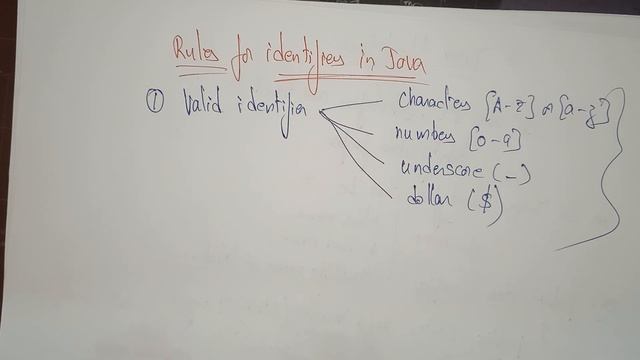 Rules for identifiers in Java
① Valid identifier
characters [A-Z] or [a-z]
numbers [0-9]
underscore (_)
dollar ($)